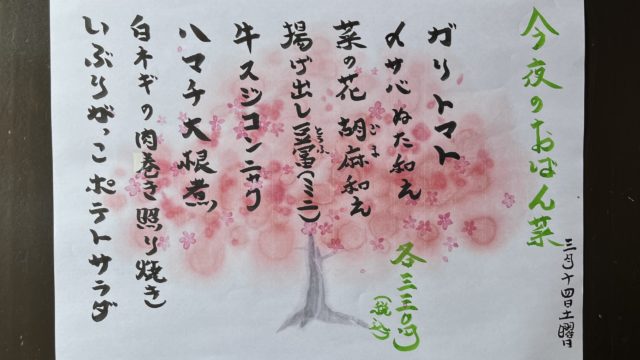 今夜のおばん菜
三月十四日土曜日
ガリトマト
〆サバぬた和え
菜の花胡麻和え
ごま
揚げ出し豆冨(ミニ)
とうふ
牛スジコンニャク
ハマチ大根煮
白ネギの肉巻き照り焼き
いぶりがっこポテトサラダ
各三三〇円
(税込)